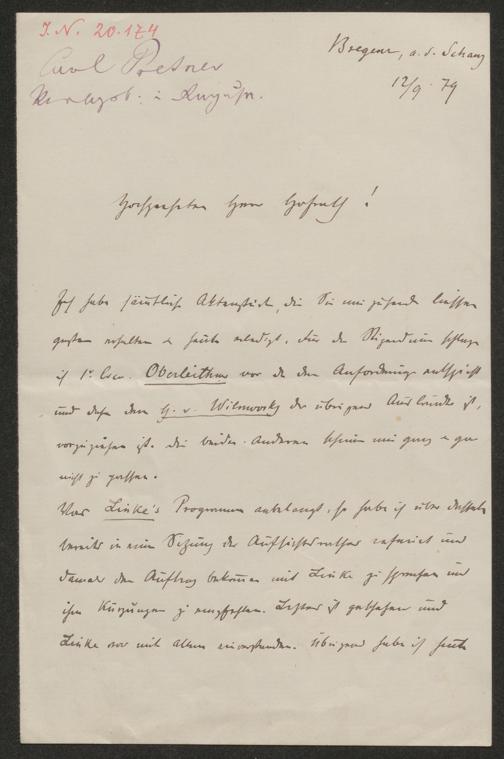 I.N. 20.174
Carl
Bregenz, a. d. Schanz
12/9. 79
Hochgeehrter Herr Hofrath!
Ich habe sämtliche Aktenstücke, die Sie mir zusenden liessen
gestern erhalten & heute erledigt. Für das Stipendium schlage
ich 1° loco. Oberleithner vor da den Anforderungen entspricht
und dehn dem H. v. Wilmowsky der übrigens Ausländer ist,
vorzuziehen ist. Die beiden Anderen scheinen mir ganz & gar
nicht zu passen.
Was Linke's Programm anbelangt, so habe ich über dasselbe
bereits in einer Sitzung des Aufsichtsrathes referirt und
damals den Auftrag bekommen mit Linke zu sprechen und
ihm Kürzungen zu empfehlen. Letzteres ist geschehen und
Linke war mit allem einverstanden. Übrigens habe ich heute